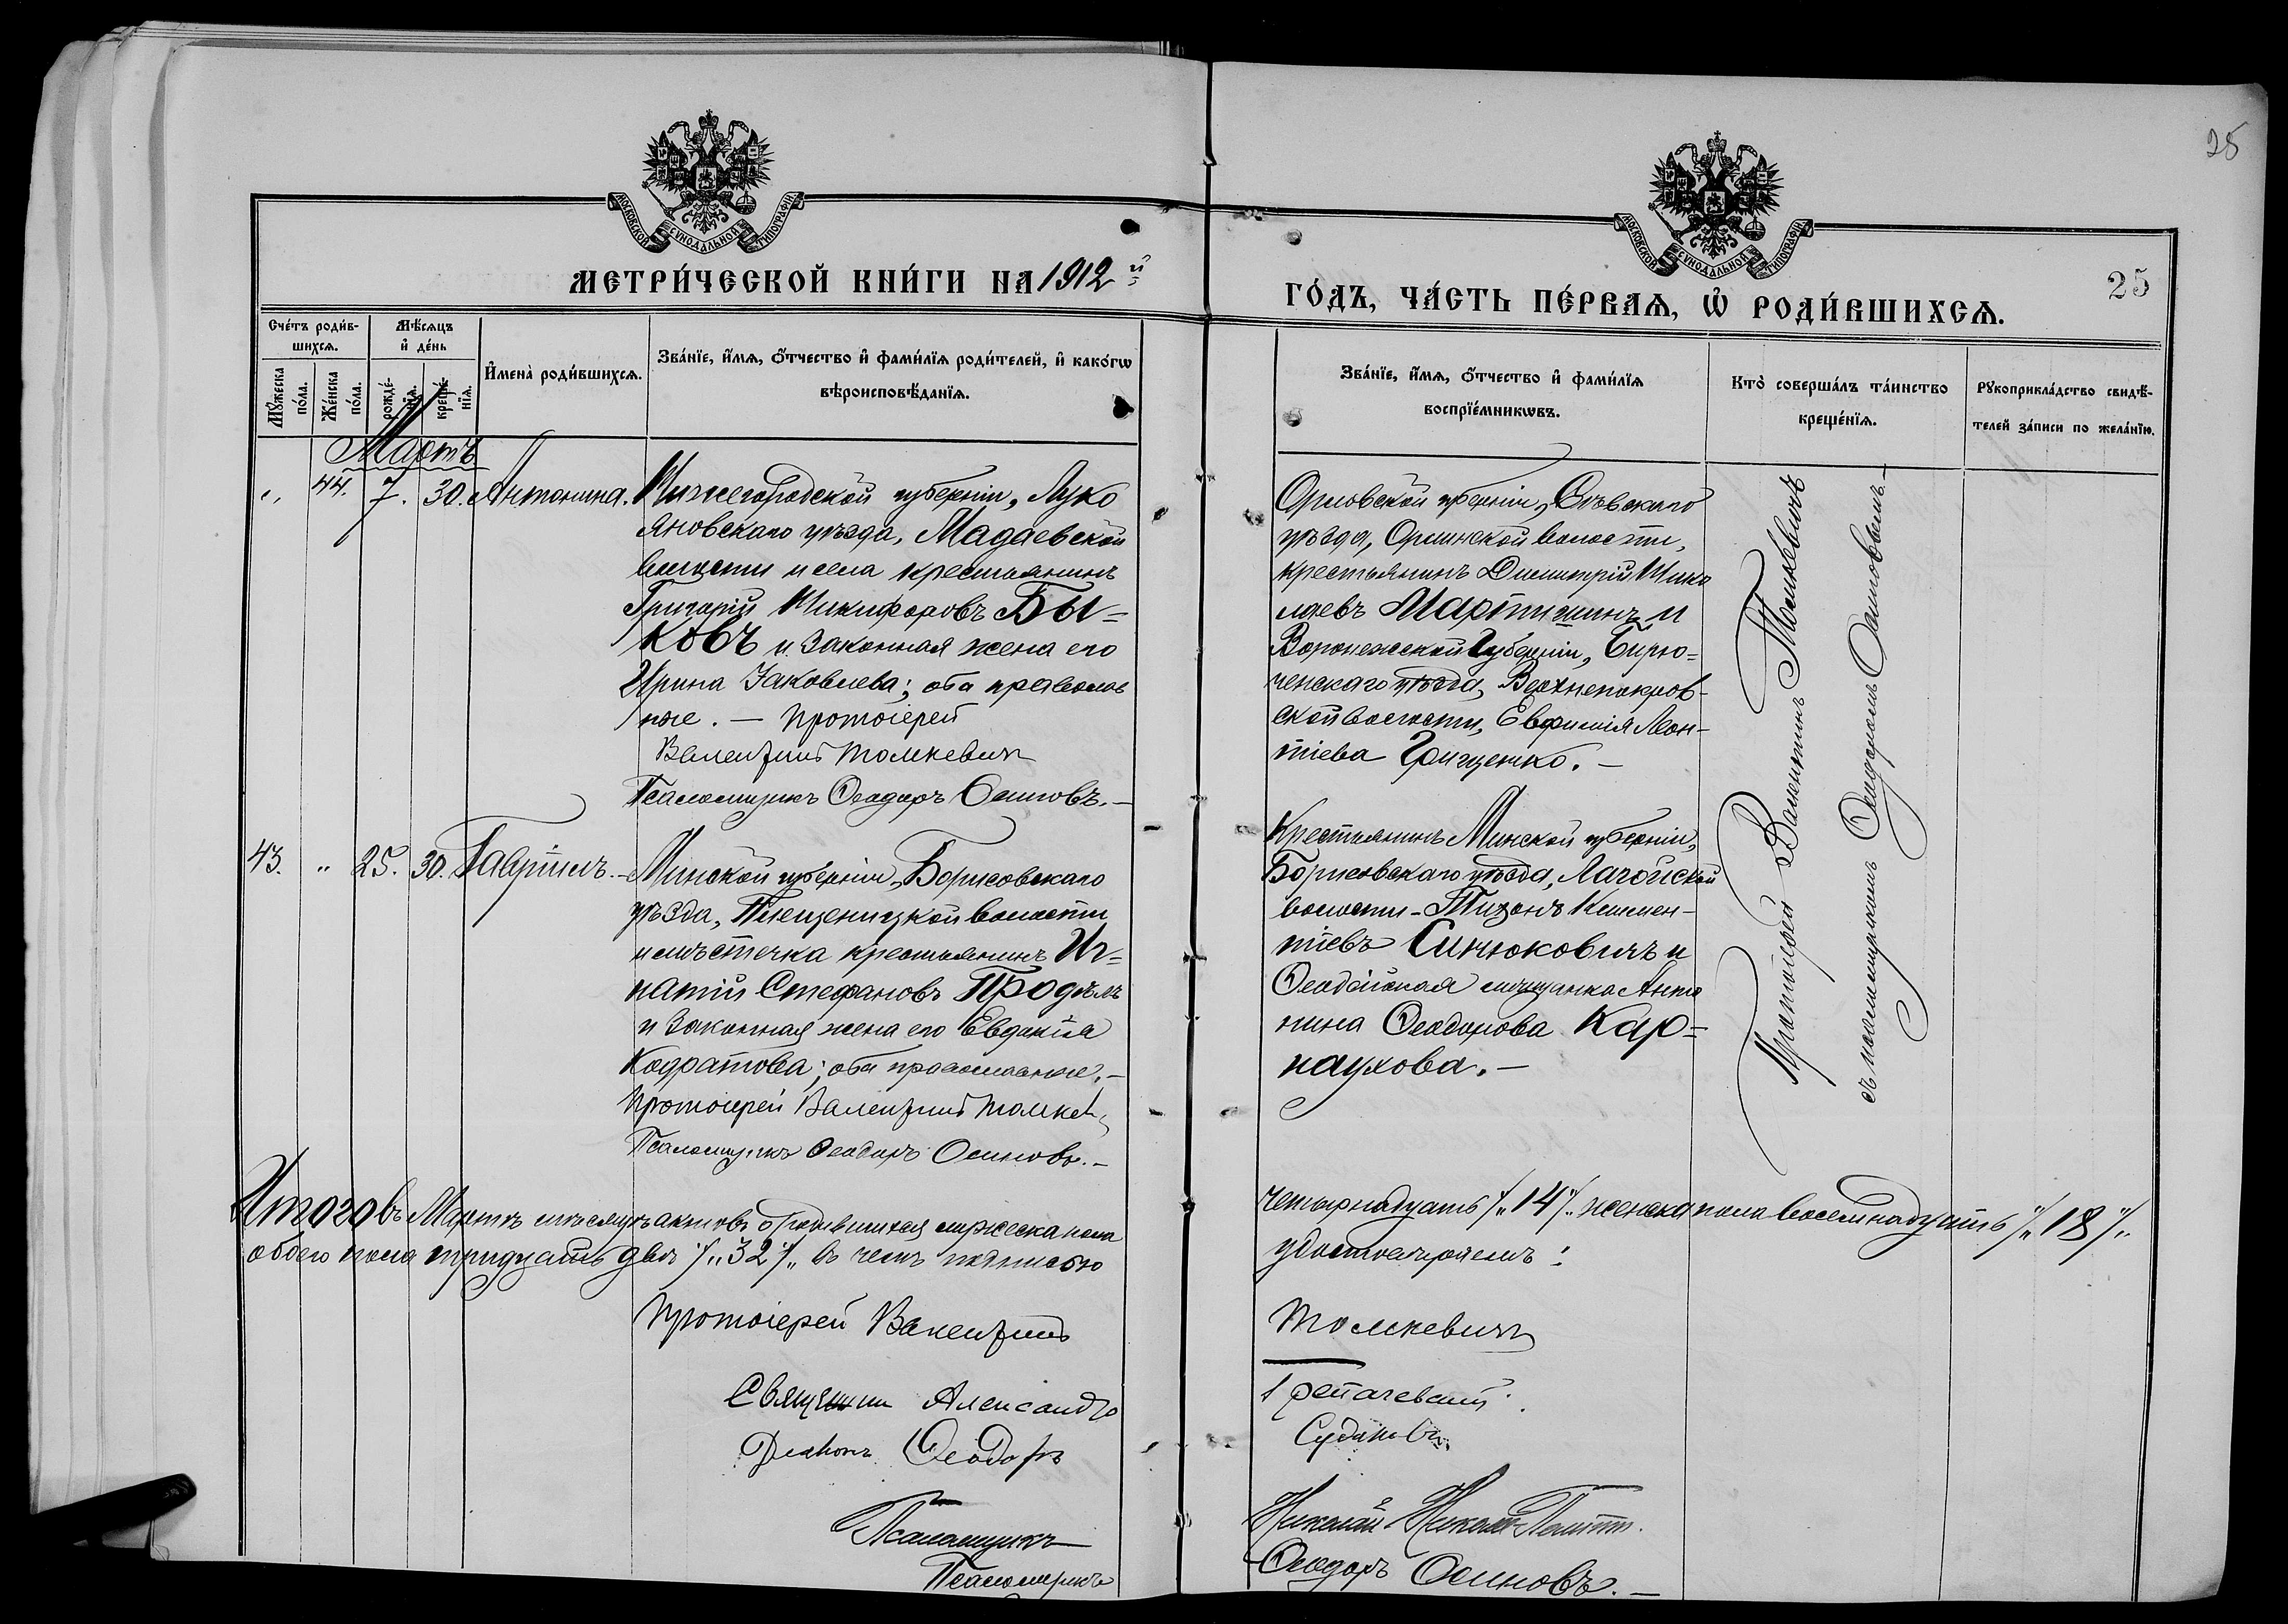 25
МОСКОВСКОЙ СѴНОДАЛЬНОЙ ТИПОГРАФІИ
МОСКОВСКОЙ СѴНОДАЛЬНОЙ ТИПОГРАФІИ
МЕТРИ́ЧЕСКОЙ КНИ́ГИ НА 1912 й
ГО́ДЪ, ЧА́СТЬ ПЕ́РВАѦ, Ѡ҆ РОДИ́ВШИХСѦ.
25
Сче́тъ роди́в-
шихсѧ.
Мѣ́сѧцъ
и҆ де́нь
Мꙋ́жеска
по́ла.
Же́нска
по́ла.
рожде́-
нїѧ.
креще́-
нїѧ.
И҆мена̀ роди́вшихсѧ.
Зва́нїе, и҆́мѧ, ѻ҆́тчество и҆ фами́лїѧ роди́телей, и҆ како́гѡ
вѣроисповѣ́данїѧ.
Зва́нїе, и҆́мѧ, ѻ҆́тчество и҆ фами́лїѧ
воспрїе́мникѡвъ.
Кто̀ соверша́лъ та́инство
креще́нїѧ.
Рꙋкоприкла́дство свидѣ́-
телей за́писи по жела́нїю.
Мартъ
„ 44. 7. 30. Антонина.
Нижегородской губерніи, Луко
яновскаго уѣзда, Мадаевской
волости и села крестьянинъ
Григорій Никифоровъ Бы-
ковъ и законная жена его
Ирина Іаковлева; оба православ
ные. — Протоіерей
Валентинъ Томкевичъ
Псаломщикъ Ѳеодоръ Осиповъ. —
Орловской губерніи, Сѣвскаго
уѣзда,  волости,
крестьянинъ Димитрій Нико
лаевъ Мартишинъ и
Воронежской губерніи, Бирю-
ченскаго уѣзда, Верхнепокров-
ской волости, Евфимія Леон-
тіева Грищенко. —
43. „ 25. 30. Гавріилъ. —
Минской губерніи, Борисовскаго
уѣзда, Плещеницкой волости
и мѣстечка крестьянинъ Иг-
натій Стефановъ Продѣлъ
и законная жена его Евдокія
Кодратова; оба православные. —
Протоіерей Валентинъ Томкев
Псаломщикъ Ѳеодоръ Осиповъ. —
Крестьянинъ Минской губерніи,
Борисовскаго уѣзда, Лагойской
волости — Тихонъ Климен-
тіевъ Синюковичъ и
Ѳеодосійская мѣщанка Анто
нина Ѳеодорова Кар-
наухова. —
Протоіерей Валентинъ Томкевичъ
съ псаломщикомъ Ѳеодоромъ Осиповымъ. —
Итого въ Мартѣ мѣсяцѣ актовъ о родившихся мужеска пола
четырнадцать /„14/„ женска пола восемнадцать /„18/„
обоего пола тридцать два /„32/„ въ чемъ подписью
удостовѣряемъ:
Протоіерей Валентинъ
Томкевичъ
Священникъ Александръ
Діаконъ Ѳеодоръ
Судаковъ
Псаломщикъ
Николай
Псаломщикъ
Ѳеодоръ Осиповъ. —